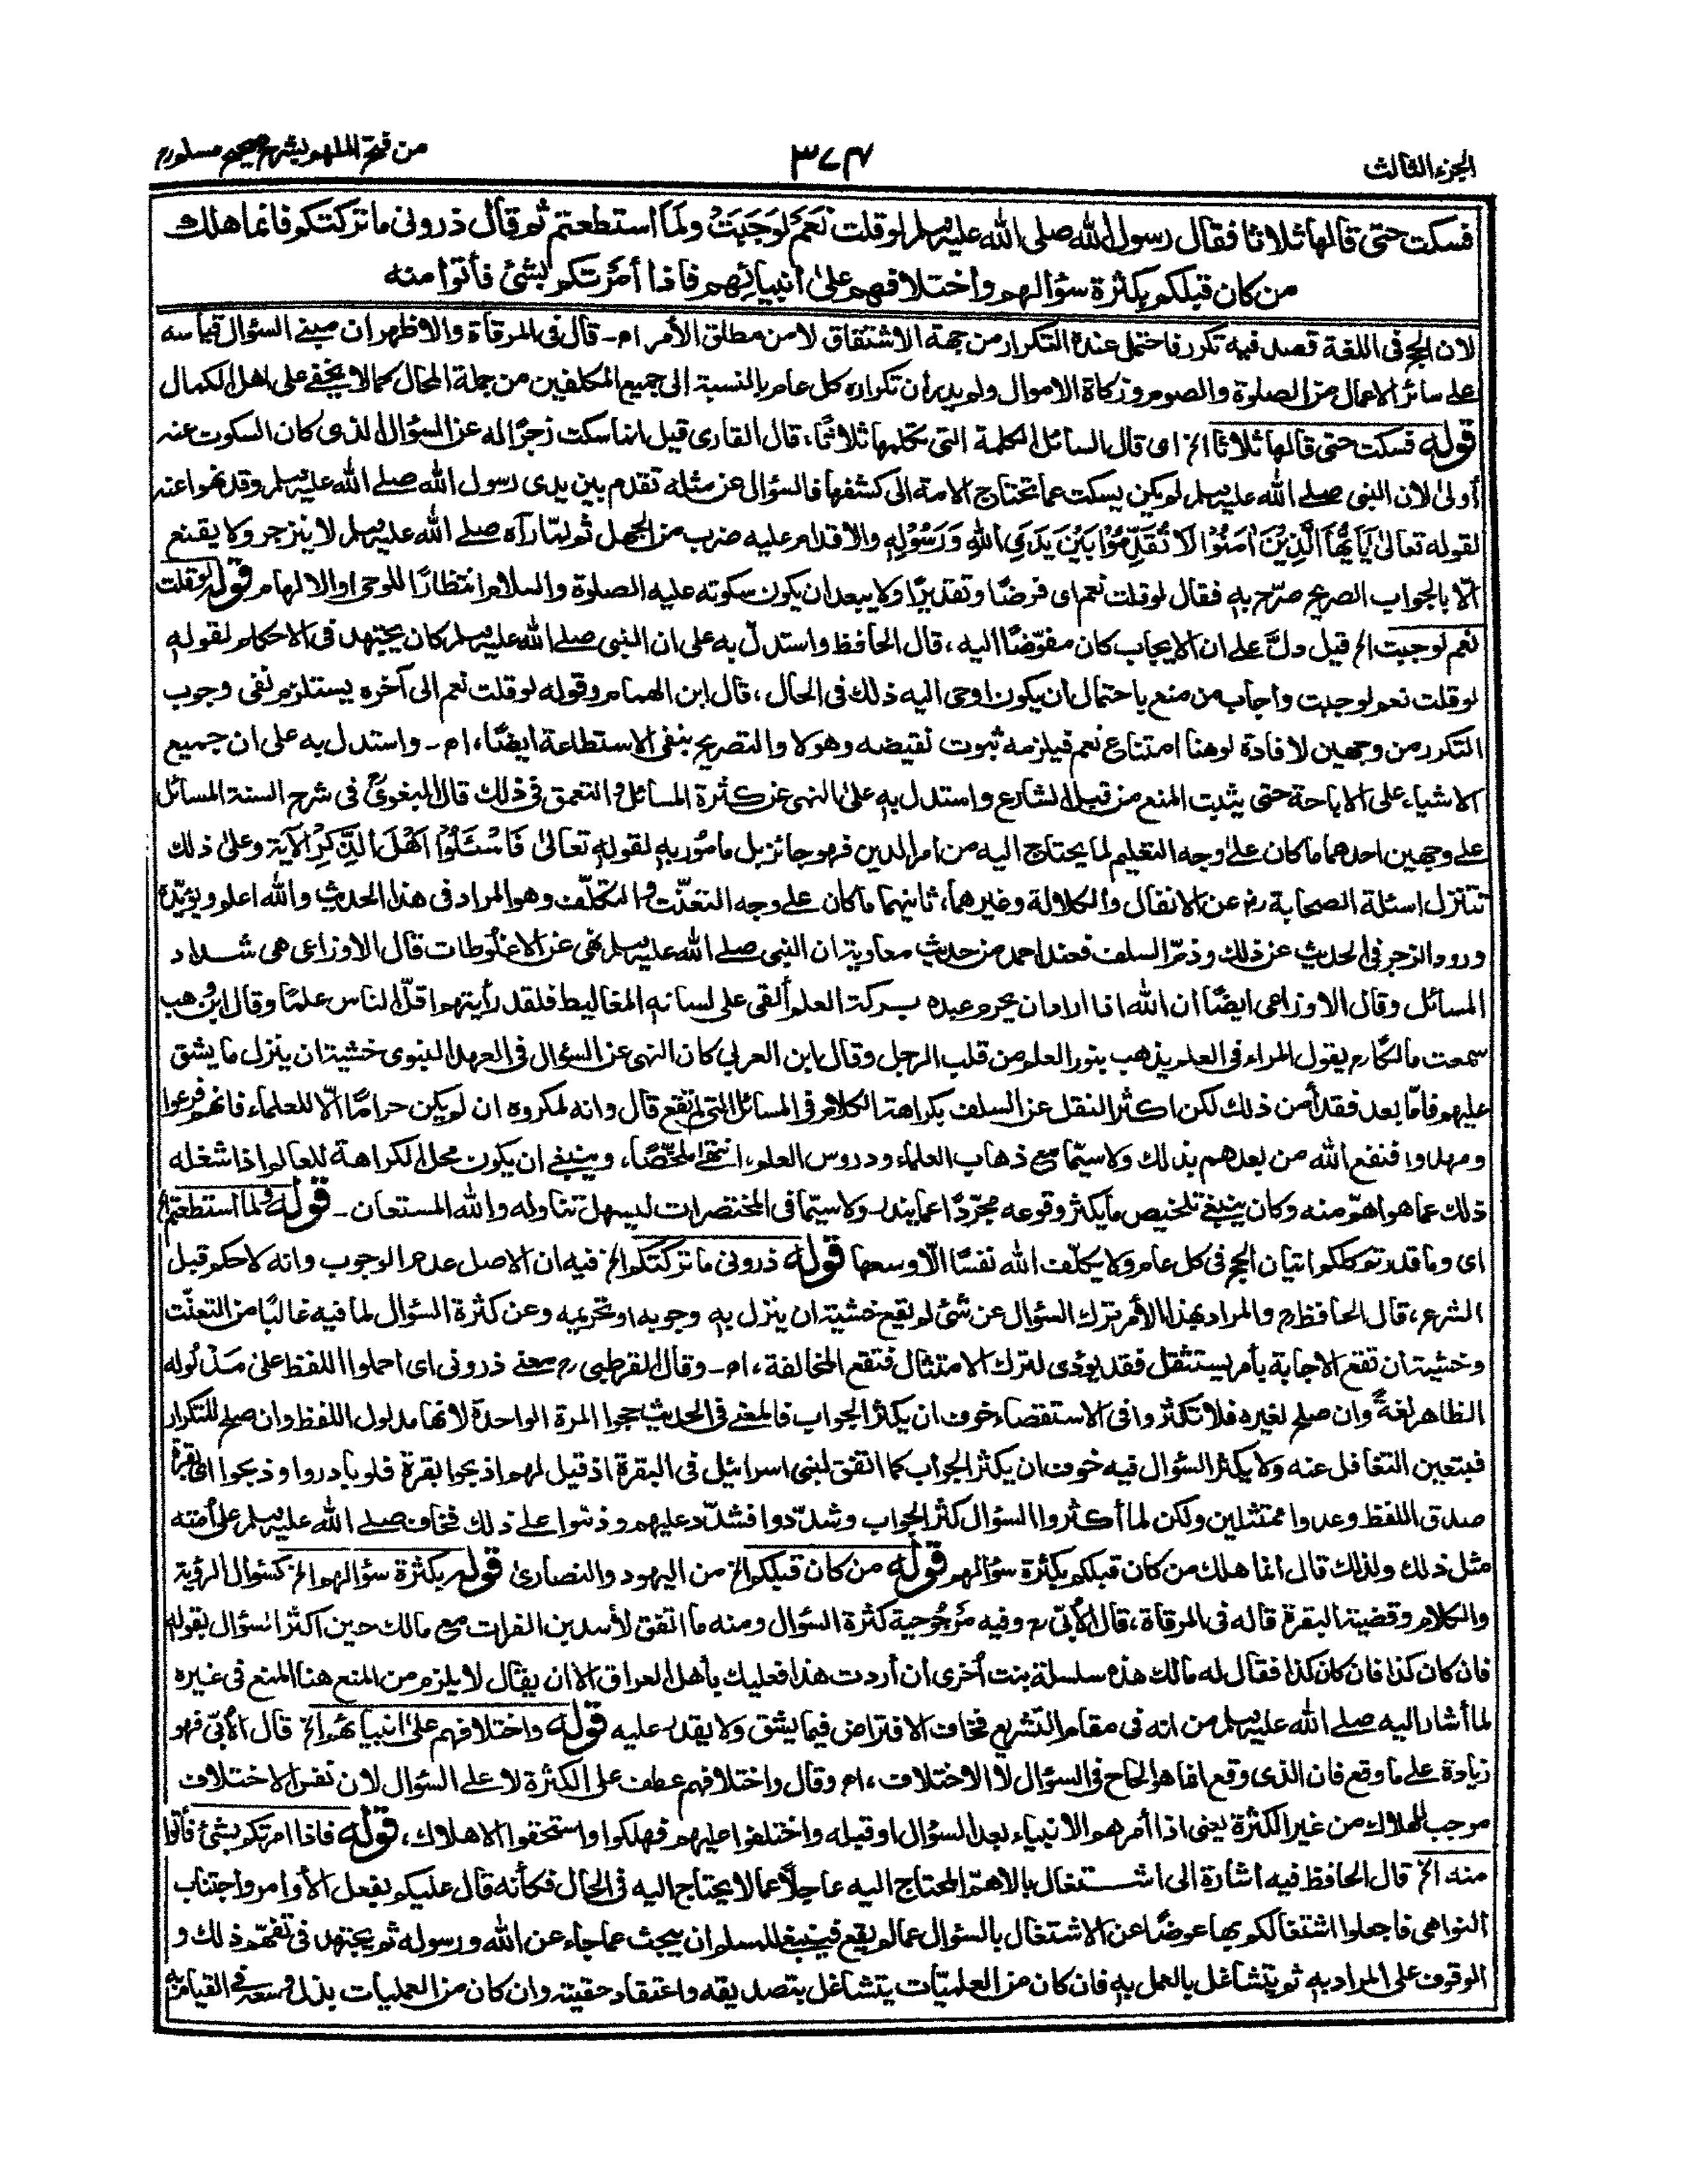 الجزء الثالث
٣٧٤
من فتح الملهم بشرح صحيح مسلم رح
فسكت حتى قالها ثلاثا فقال رسول الله صلى الله عليه وسلم لو قلت نَعَمْ لَوَجَبَتْ ولَمَا استطعتم ثم قال ذروني ما تركتكم فانما هلك
من كان قبلكم بكثرة سؤالهم واختلافهم على أنبيائهم فاذا أمَرْتكم بشئ فأتوا منه
لان الحج فى اللغة قصد فيه تكرر فاحتمل عنده التكرار من جهة الاشتقاق لا من مطلق الأمر ام ـ قال فى المرقاة والاظهر ان مبنے السؤال قياسه
علے سائر الاعمال من الصلوة والصوم وزكاة الاموال ولم يدر أن تكراره كل عام بالنسبة الى جميع المكلفين من جملة المحال كما لا يخفے على اهل الكمال
قوله فسكت حتى قالها ثلاثا الخ اى قال السائل الكلمة التى تكلمها ثلاثًا، قال القارى قيل انما سكت زجرًا له عن السؤال الذى كان السكوت عنه
أولىٰ لان النبى صلے الله عليه وسلم لم يكن يسكت عما تحتاج الامة الى كشفها فالسؤال عن مثله تقدم بين يدى رسول الله صلے الله عليه وسلم وقد نهوا عنه
لقوله تعالىٰ يَاَيُّهَا الَّذِيْنَ اٰمَنُوْا لَا تُقَدِّمُوْا بَيْنَ يَدَيِ اللّٰهِ وَرَسُوْلِهٖ والاقدام عليه ضرب من الجهل ثم لما رآه صلے الله عليه وسلم لا ينزجر ولا يقنع
الّا بالجواب الصريح صرّح به فقال لو قلت نعم اى فرضًا وتقديرًا ولا يبعد ان يكون سكوته عليه الصلوة والسلام انتظارًا للوحى او الالهام قوله لو قلت
نعم لوجبت الخ قيل دلَّ علے ان الايجاب كان مفوّضًا اليه، قال الحافظ واستدلّ به على ان النبى صلے الله عليه وسلم كان يجتهد فى الاحكام لقوله
لو قلت نعم لوجبت واجاب من منع باحتمال أن يكون اوحى اليه ذلك فى الحال، قال ابن الهمام وقوله لو قلت نعم الى آخره يستلزم نفى وجوب
التكرر من وجهين لافادة لو هنا امتناع نعم فيلزمه ثبوت نقيضه وهو لا والتصريح بنفى الاستطاعة ايضًا، ام ـ واستدل به على ان جميع
الاشياء على الاباحة حتى يثبت المنع من قبل الشارع واستدل به علىٰ النهى عن كثرة المسائل والتعمق فى ذلك قال البغوىؒ فى شرح السنة المسائل
علے وجهين احدهما ما كان علےٰ وجه التعليم لما يحتاج اليه من امر الدين فهو جائز بل مأمور به لقوله تعالىٰ فَاسْئَلُوْا اَهْلَ الذِّكْرِ الآية وعلىٰ ذلك
تتنزل اسئلة الصحابة رض عن الانفال والكلالة وغيرهما، ثانيهما ما كان علے وجه التعنّت والتكلّف وهو المراد فى هذا الحديث والله اعلم ويؤيّده
ورود الزجر فى الحديث عن ذلك وذمّ السلف فعند احمد من حديث معاوية ان النبى صلے الله عليه وسلم نهى عن الاغلوطات قال الاوزاعى هى شداد
المسائل وقال الاوزاعى ايضًا ان الله اذا اراد ان يحرم عبده بركة العلم ألقى على لسانه المغاليط فلقد رأيتهم اقلّ الناس علمًا وقال ابن وهب
سمعت مالكًا رح يقول المراء فى العلم يذهب بنور العلم من قلب الرجل وقال ابن العربى كان النهى عن السؤال فى العهد النبوى خشية ان ينزل ما يشق
عليهم فامّا بعد فقد أمن ذلك لكن اكثر النقل عن السلف بكراهة الكلام فى المسائل التى لم تقع قال وانه لمكروه ان لم يكن حرامًا الّا للعلماء فانهم فرعوا
ومهدوا فنفع الله من بعدهم بذلك ولا سيّما مع ذهاب العلماء ودروس العلم، انتهےٰ ملخّصًا، وينبغے ان يكون محل الكراهة للعالم اذا شغله
ذلك عما هو اهمّ منه وكان ينبغے تلخيص ما يكثر وقوعه مجرّدًا عما يندر ولا سيّما فى المختصرات ليسهل تناوله والله المستعان ـ قوله ولما استطعتم الخ
اى وما قدرتم كلكم اتيان الحج فى كل عام ولا يكلّف الله نفسًا الّا وسعها قوله ذرونى ما تركتكم الخ فيه ان الاصل عدم الوجوب وانه لا حكم قبل
الشرع، قال الحافظ رح والمراد بهذا الأمر ترك السؤال عن شئ لم يقع خشية ان ينزل به وجوبه او تحريمه وعن كثرة السؤال لما فيه غالبًا من التعنّت
وخشية ان تقع الاجابة بأمر يستثقل فقد يؤدى لترك الامتثال فتقع المخالفة، ام ـ وقال القرطبى رح معنے ذرونى اى احملوا اللفظ علىٰ مَدْلوله
الظاهر لغةً وان صلح لغيره فلا تكثروا فى الاستقصاء خوف ان يكثر الجواب فالمعنے فى الحديث حجوا المرة الواحدة لانها مدلول اللفظ وان صلح للتكرار
فيتعين التغافل عنه ولا يكثر السؤال فيه خوف ان يكثر الجواب كما اتفق لبنى اسرائيل فى البقرة اذ قيل لهم اذبحوا بقرة فلو بادروا وذبحوا اى بقرة
صدق اللفظ وعدوا ممتثلين ولكن لما أكثروا السؤال كثر الجواب وشدّدوا فشدّد عليهم وذمّوا علے ذلك فخاف صلے الله عليه وسلم على أمته
مثل ذلك ولذلك قال انما هلك من كان قبلكم بكثرة سؤالهم قوله من كان قبلكم الخ من اليهود والنصارىٰ قوله بكثرة سؤالهم الخ كسُؤال الرؤية
والكلام وقضية البقرة قاله فى المرقاة، قال الأبىّ رح وفيه مَرجُوحية كثرة السؤال ومنه ما اتفق لأسد بن الفرات مع مالك حين اكثر السؤال بقوله
فان كان كذا فان كان كذا فقال له مالك هذه سلسلة بنت أخرى ان أردت هذا فعليك بأهل العراق الا ان يقال لا يلزم من المنع هنا المنع فى غيره
لما أشار اليه صلے الله عليه وسلم من انه فى مقام التشريع فخاف الافتراض فيما يشق ولا يقدر عليه قوله واختلافهم علىٰ انبيائهم الخ قال الأبّى فهو
زيادة علے ما وقع فان الذى وقع انما هو الحاح فى السؤال لا الاختلاف، ام وقال واختلافهم عطف على الكثرة لا علے السؤال لان نفس الاختلاف
موجب للهلاك من غير الكثرة يعنى اذا أمرهم الانبياء بعد السؤال او قبله واختلفوا عليهم فهلكوا واستحقوا الاهلاك، قوله فاذا امرتكم بشئ فأتوا
منه الخ قال الحافظ فيه اشارة الى اشتغال بالاهمّ المحتاج اليه عاجلًا عما لا يحتاج اليه فى الحال فكأنه قال عليكم بفعل الأوامر واجتناب
النواهى فاجعلوا اشتغالكم بها عوضًا عن الاشتغال بالسؤال عما لم يقع فينبغے للمسلم ان يبحث عما جاء عن الله ورسوله ثم يجتهد فى تفهّم ذلك و
الوقوف على المراد به ثم يتشاغل بالعمل به فان كان من العلميّات يتشاغل بتصديقه واعتقاد حقيته وان كان من العمليات بذل وسعه فى القيام به